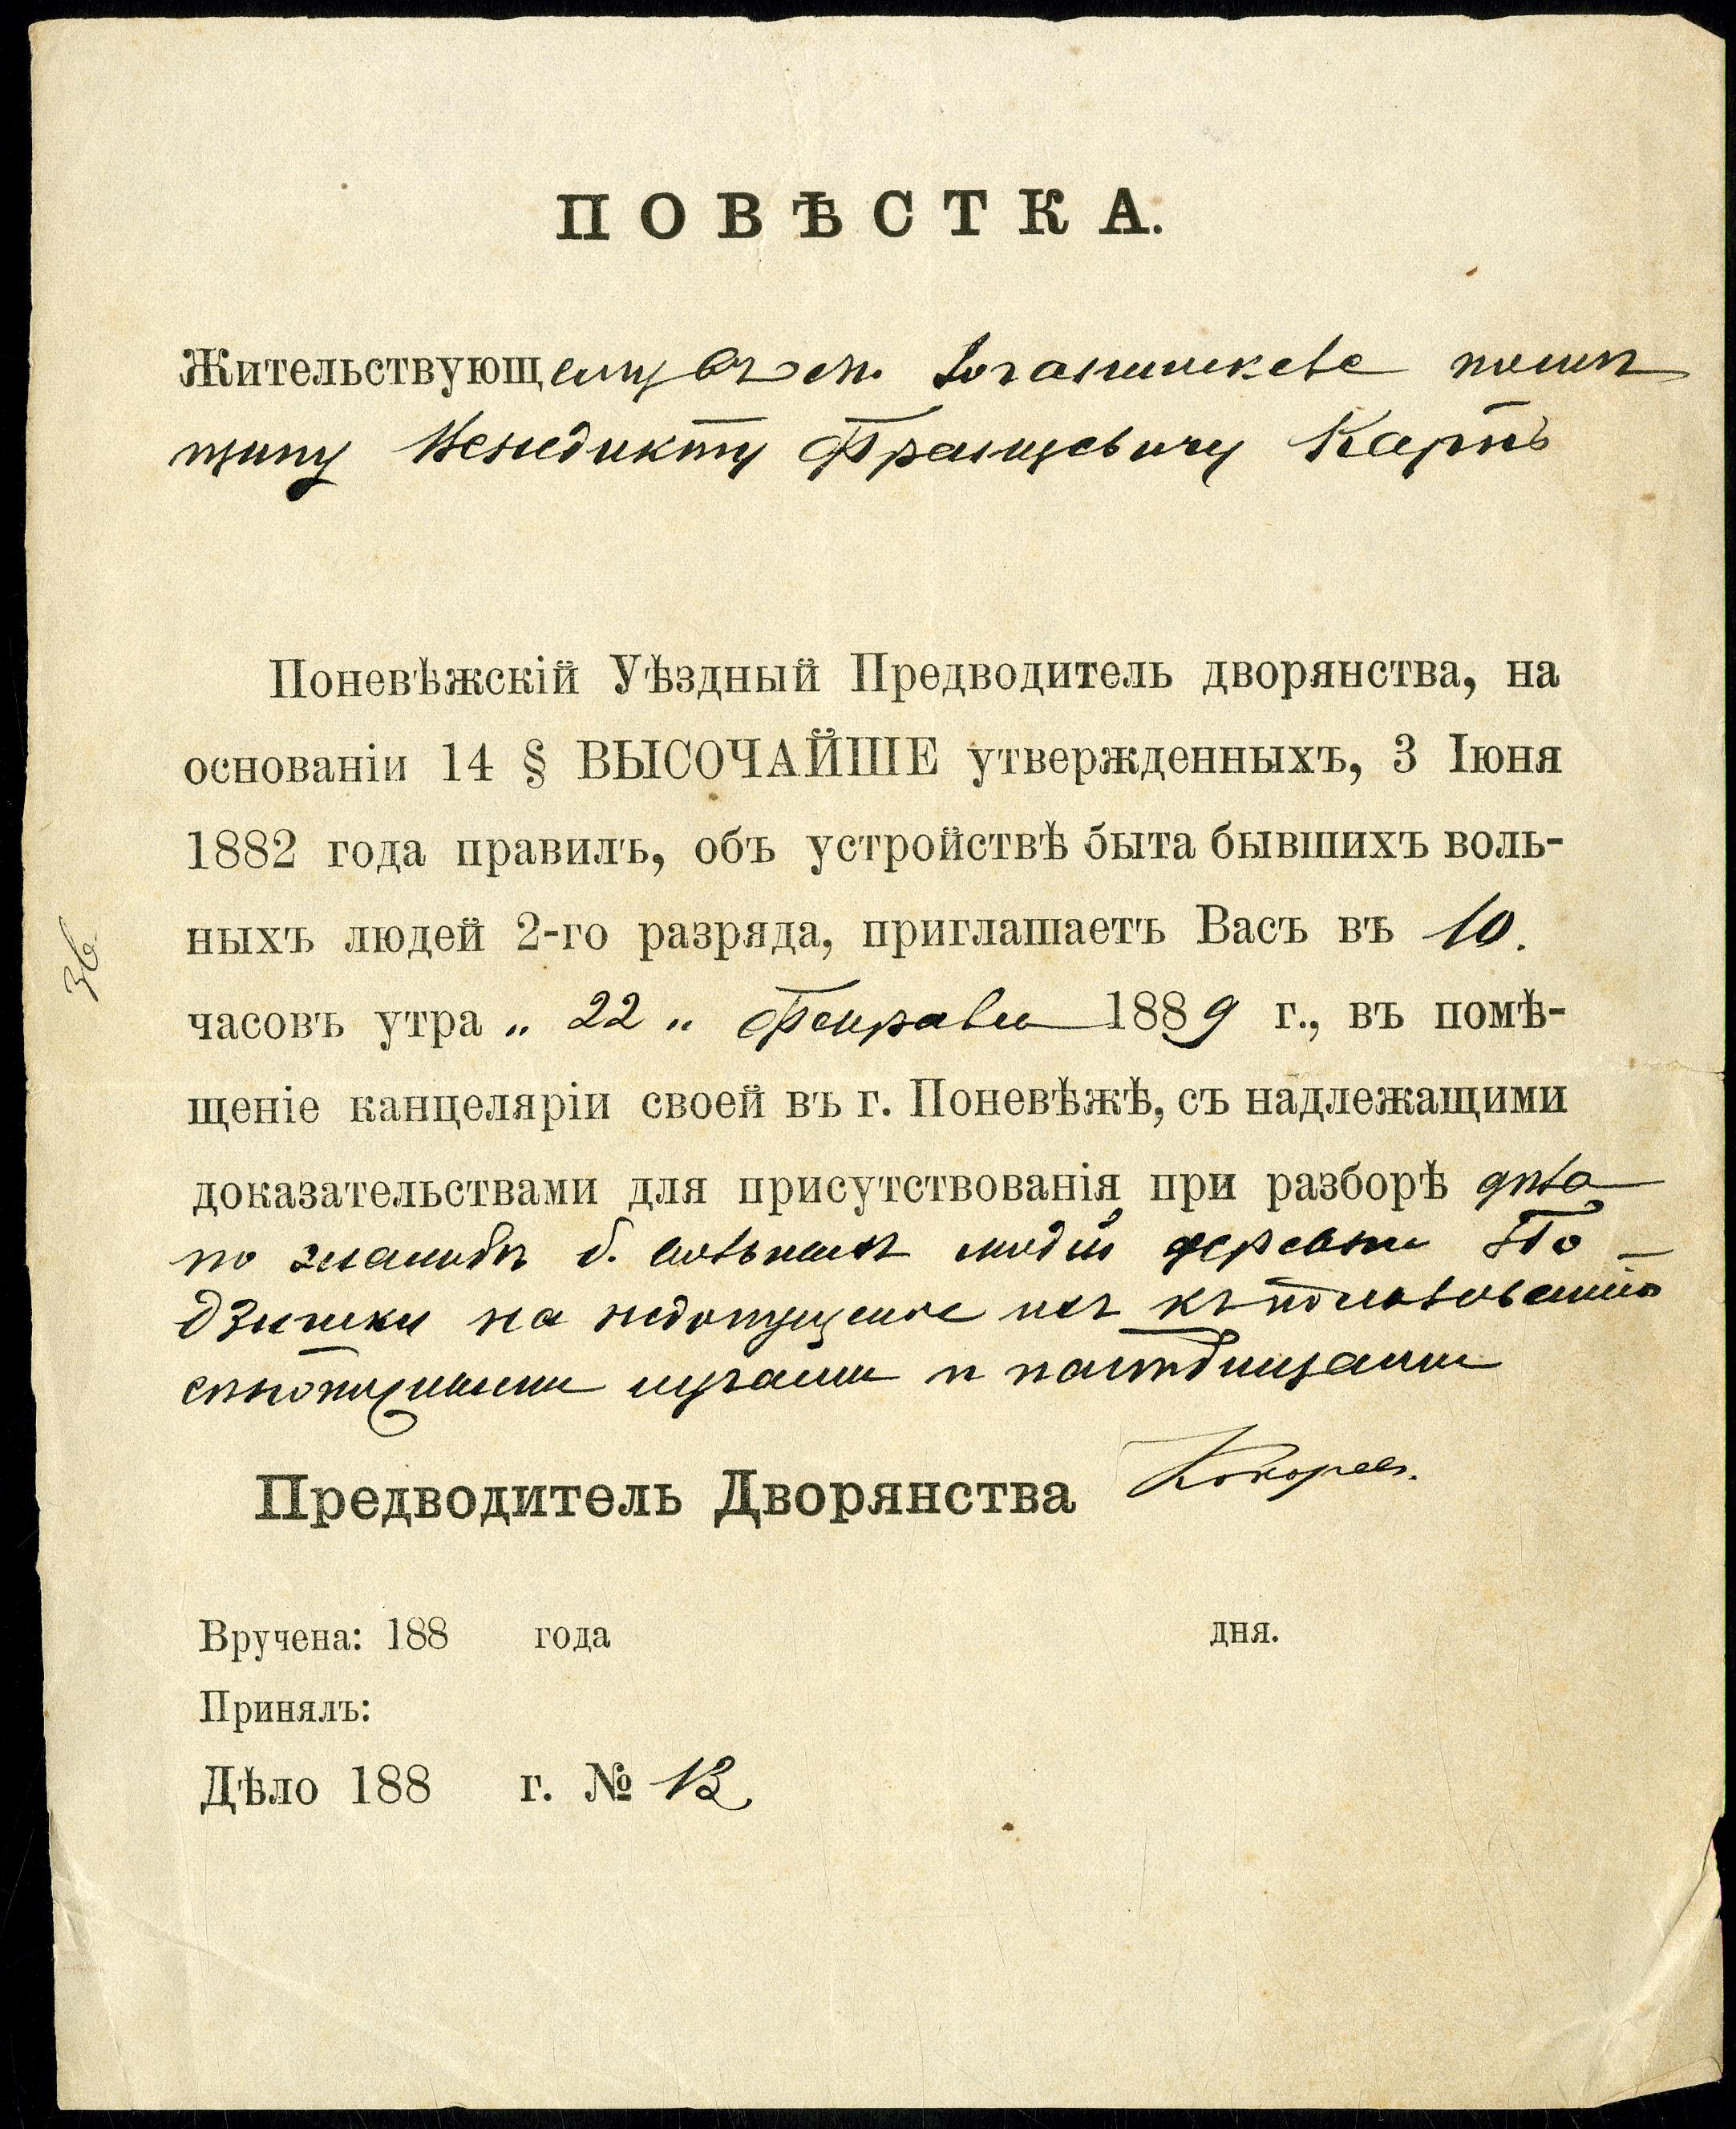 ПОВѢСТКА.
Жительствующему въ им. Іоганишкеле помѣ
щику Бенедикту Францевичу Карпь
Поневѣжскій Уѣздный Предводитель дворянства, на
основаніи 14 § ВЫСОЧАЙШЕ утвержденныхъ, 3 Іюня
1882 года правилъ, объ устройствѣ быта бывшихъ воль-
ныхъ людей 2-го разряда, приглашаетъ Васъ въ 10.
часовъ утра „ 22 „ Февраля 1889 г., въ помѣ-
щеніе канцеляріи своей въ г. Поневѣжѣ, съ надлежащими
доказательствами для присутствованія при разборѣ дѣла
по жалобѣ б. вольныхъ людей деревни
на недопущеніе ихъ къ пользованію
сѣнокосными лугами и пастбищами
Предводитель Дворянства
Вручена: 188 года дня.
Принялъ:
Дѣло 188 г. № 12
36